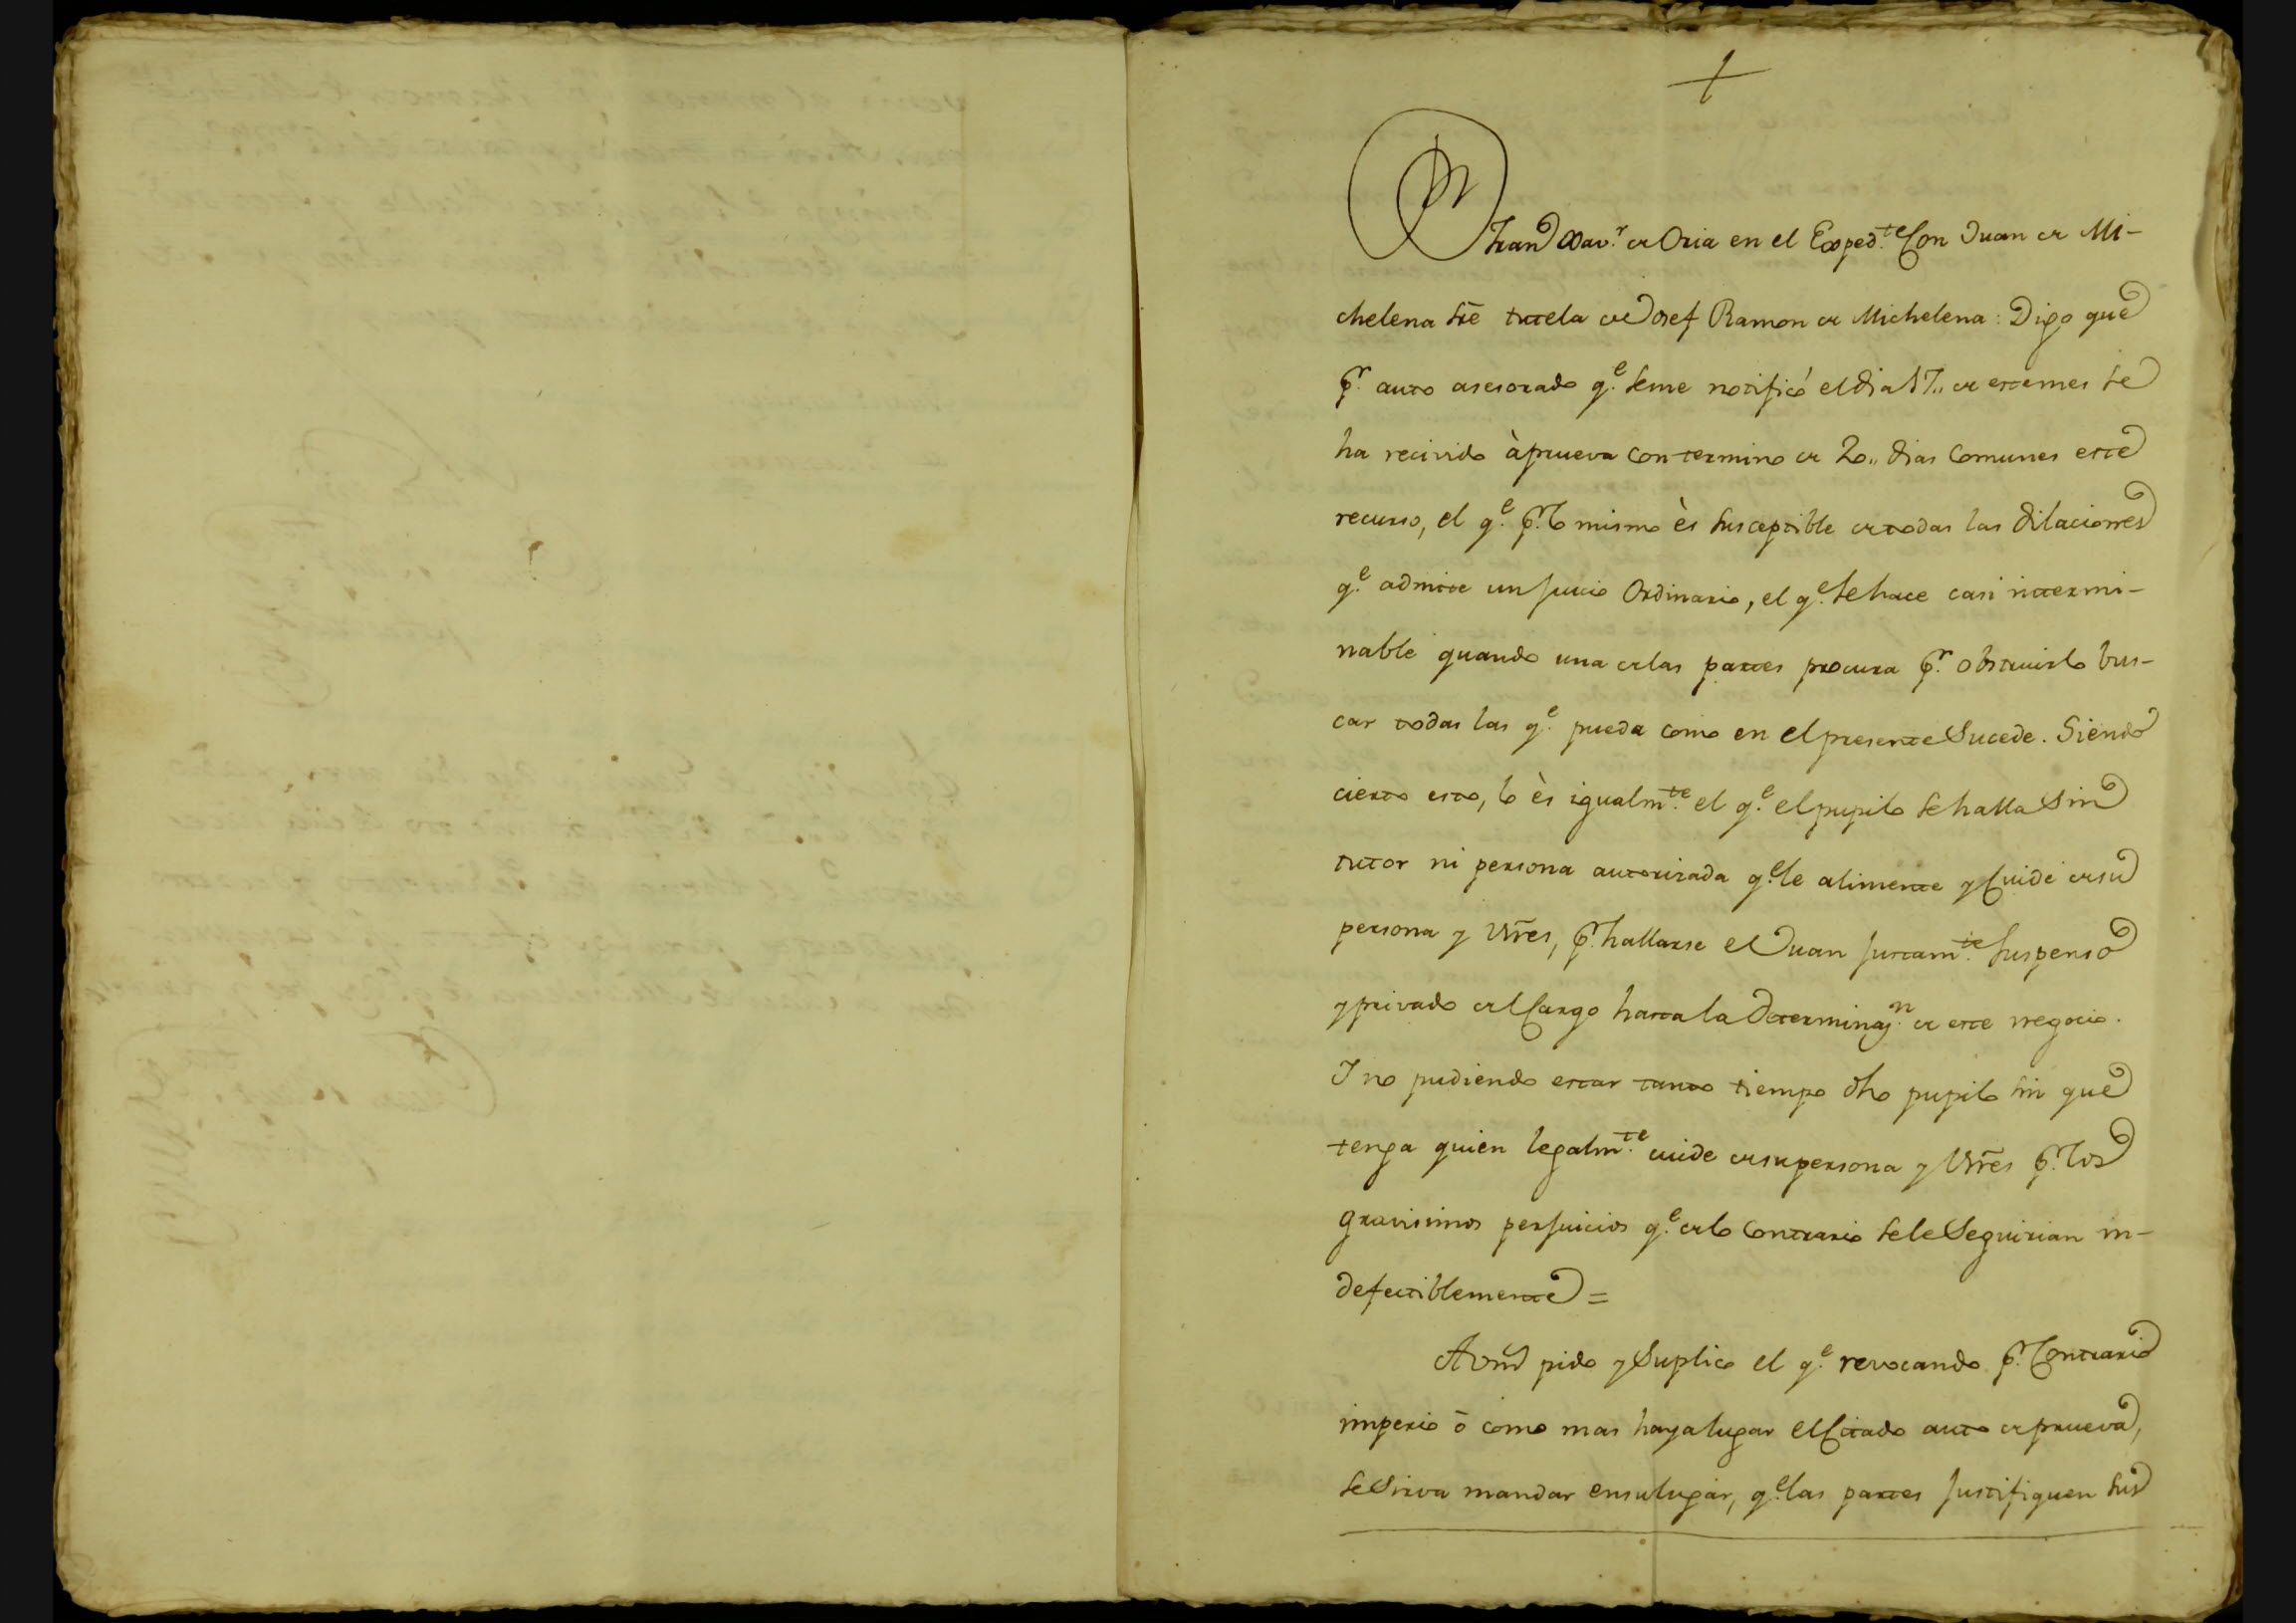 +
Fran.co Xav.r de Oria en el Exped.te con Juan de Mi-
chelena sre tutela de Josef Ramon de Michelena: Digo que
p.r auto asesorado q.e seme notificó el dia 17,, de estemes se
ha recivido àprueva con termino de 20,, dias comunes este
recurso, el q.e p.r lo mismo ès susceptible de todas las dilaciones
q.e admite un juicio Ordinario, el q.e se hace casi intermi-
nable quando una de las partes procura p.r obstruirlo bus-
car todas las q.e pueda como en el presente Sucede. Siendo
cierto esto, lo ès igualm.te el q.e el pupilo se halla sin
tutor ni persona autorizada q.e le alimente y cuide de su
persona y Vñes, p.r hallarse el Juan justam.te suspenso
y privado del cargo hasta la determinaz.n de este negocio.
I no pudiendo estar tanto tiempo dho pupilo sin que
tenga quien legalm.te cuide de su persona y Vñes p.r los
gravisimos perjuicios q.e de lo contrario sele Seguirian in-
defectiblemente =
A Vmd pido y Suplico el q.e revocando p.r contrario
imperio ó como mas haya lugar el citado auto de prueva,
se Sirva mandar ensulugar, q.e las partes justifiquen sus